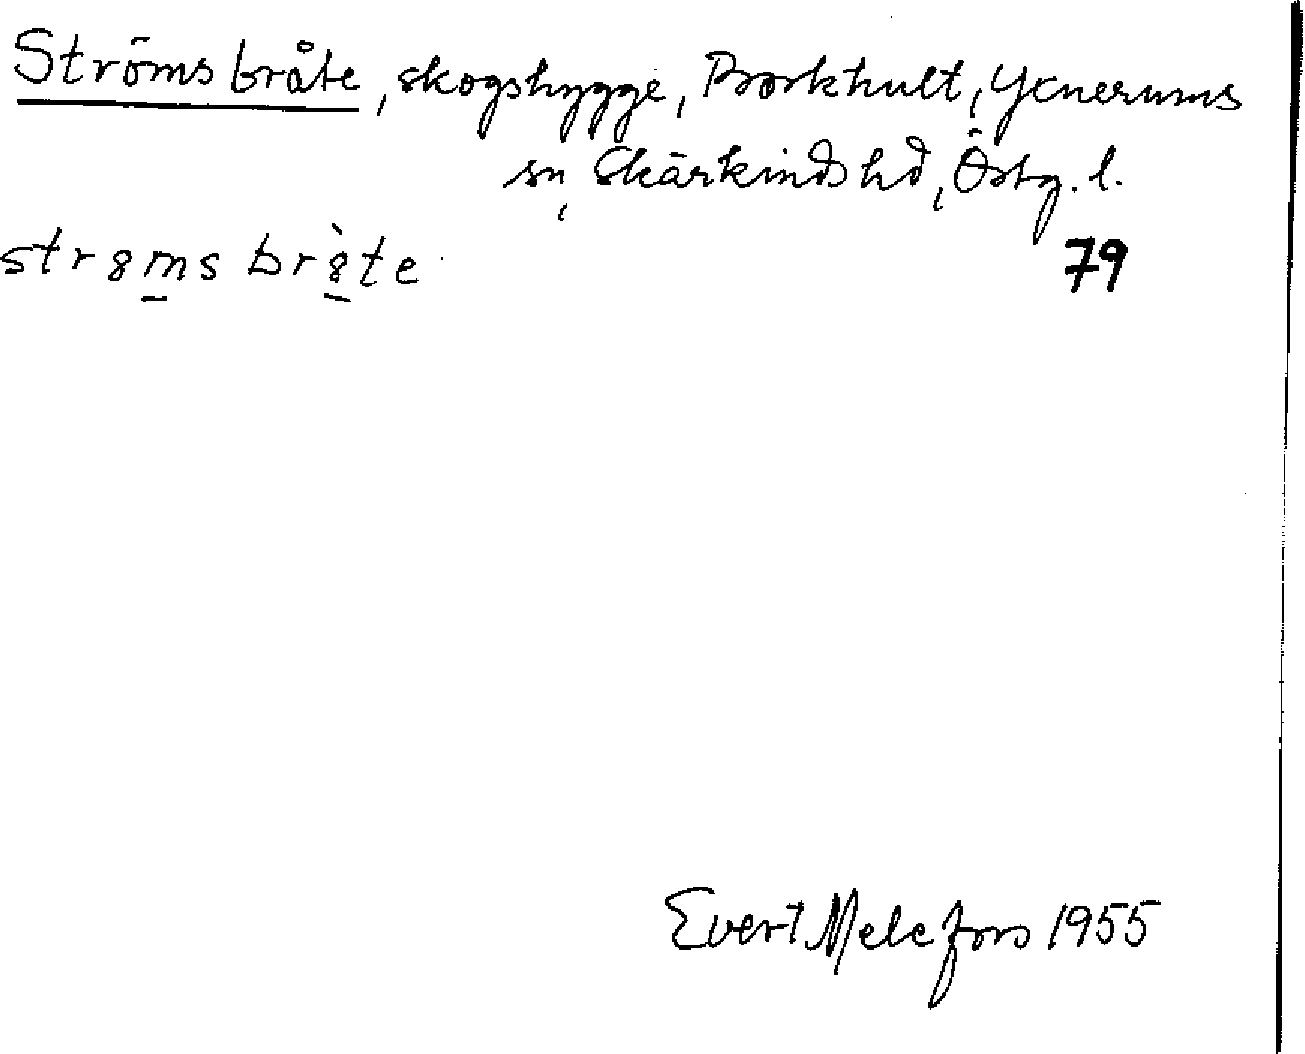 Ströms bråte, skogshygge, Borkhult, Yxnerums
sn, Skärkinds hd, Östg. l.
strȣms brȣ̀te
79
Evert Melefors 1955